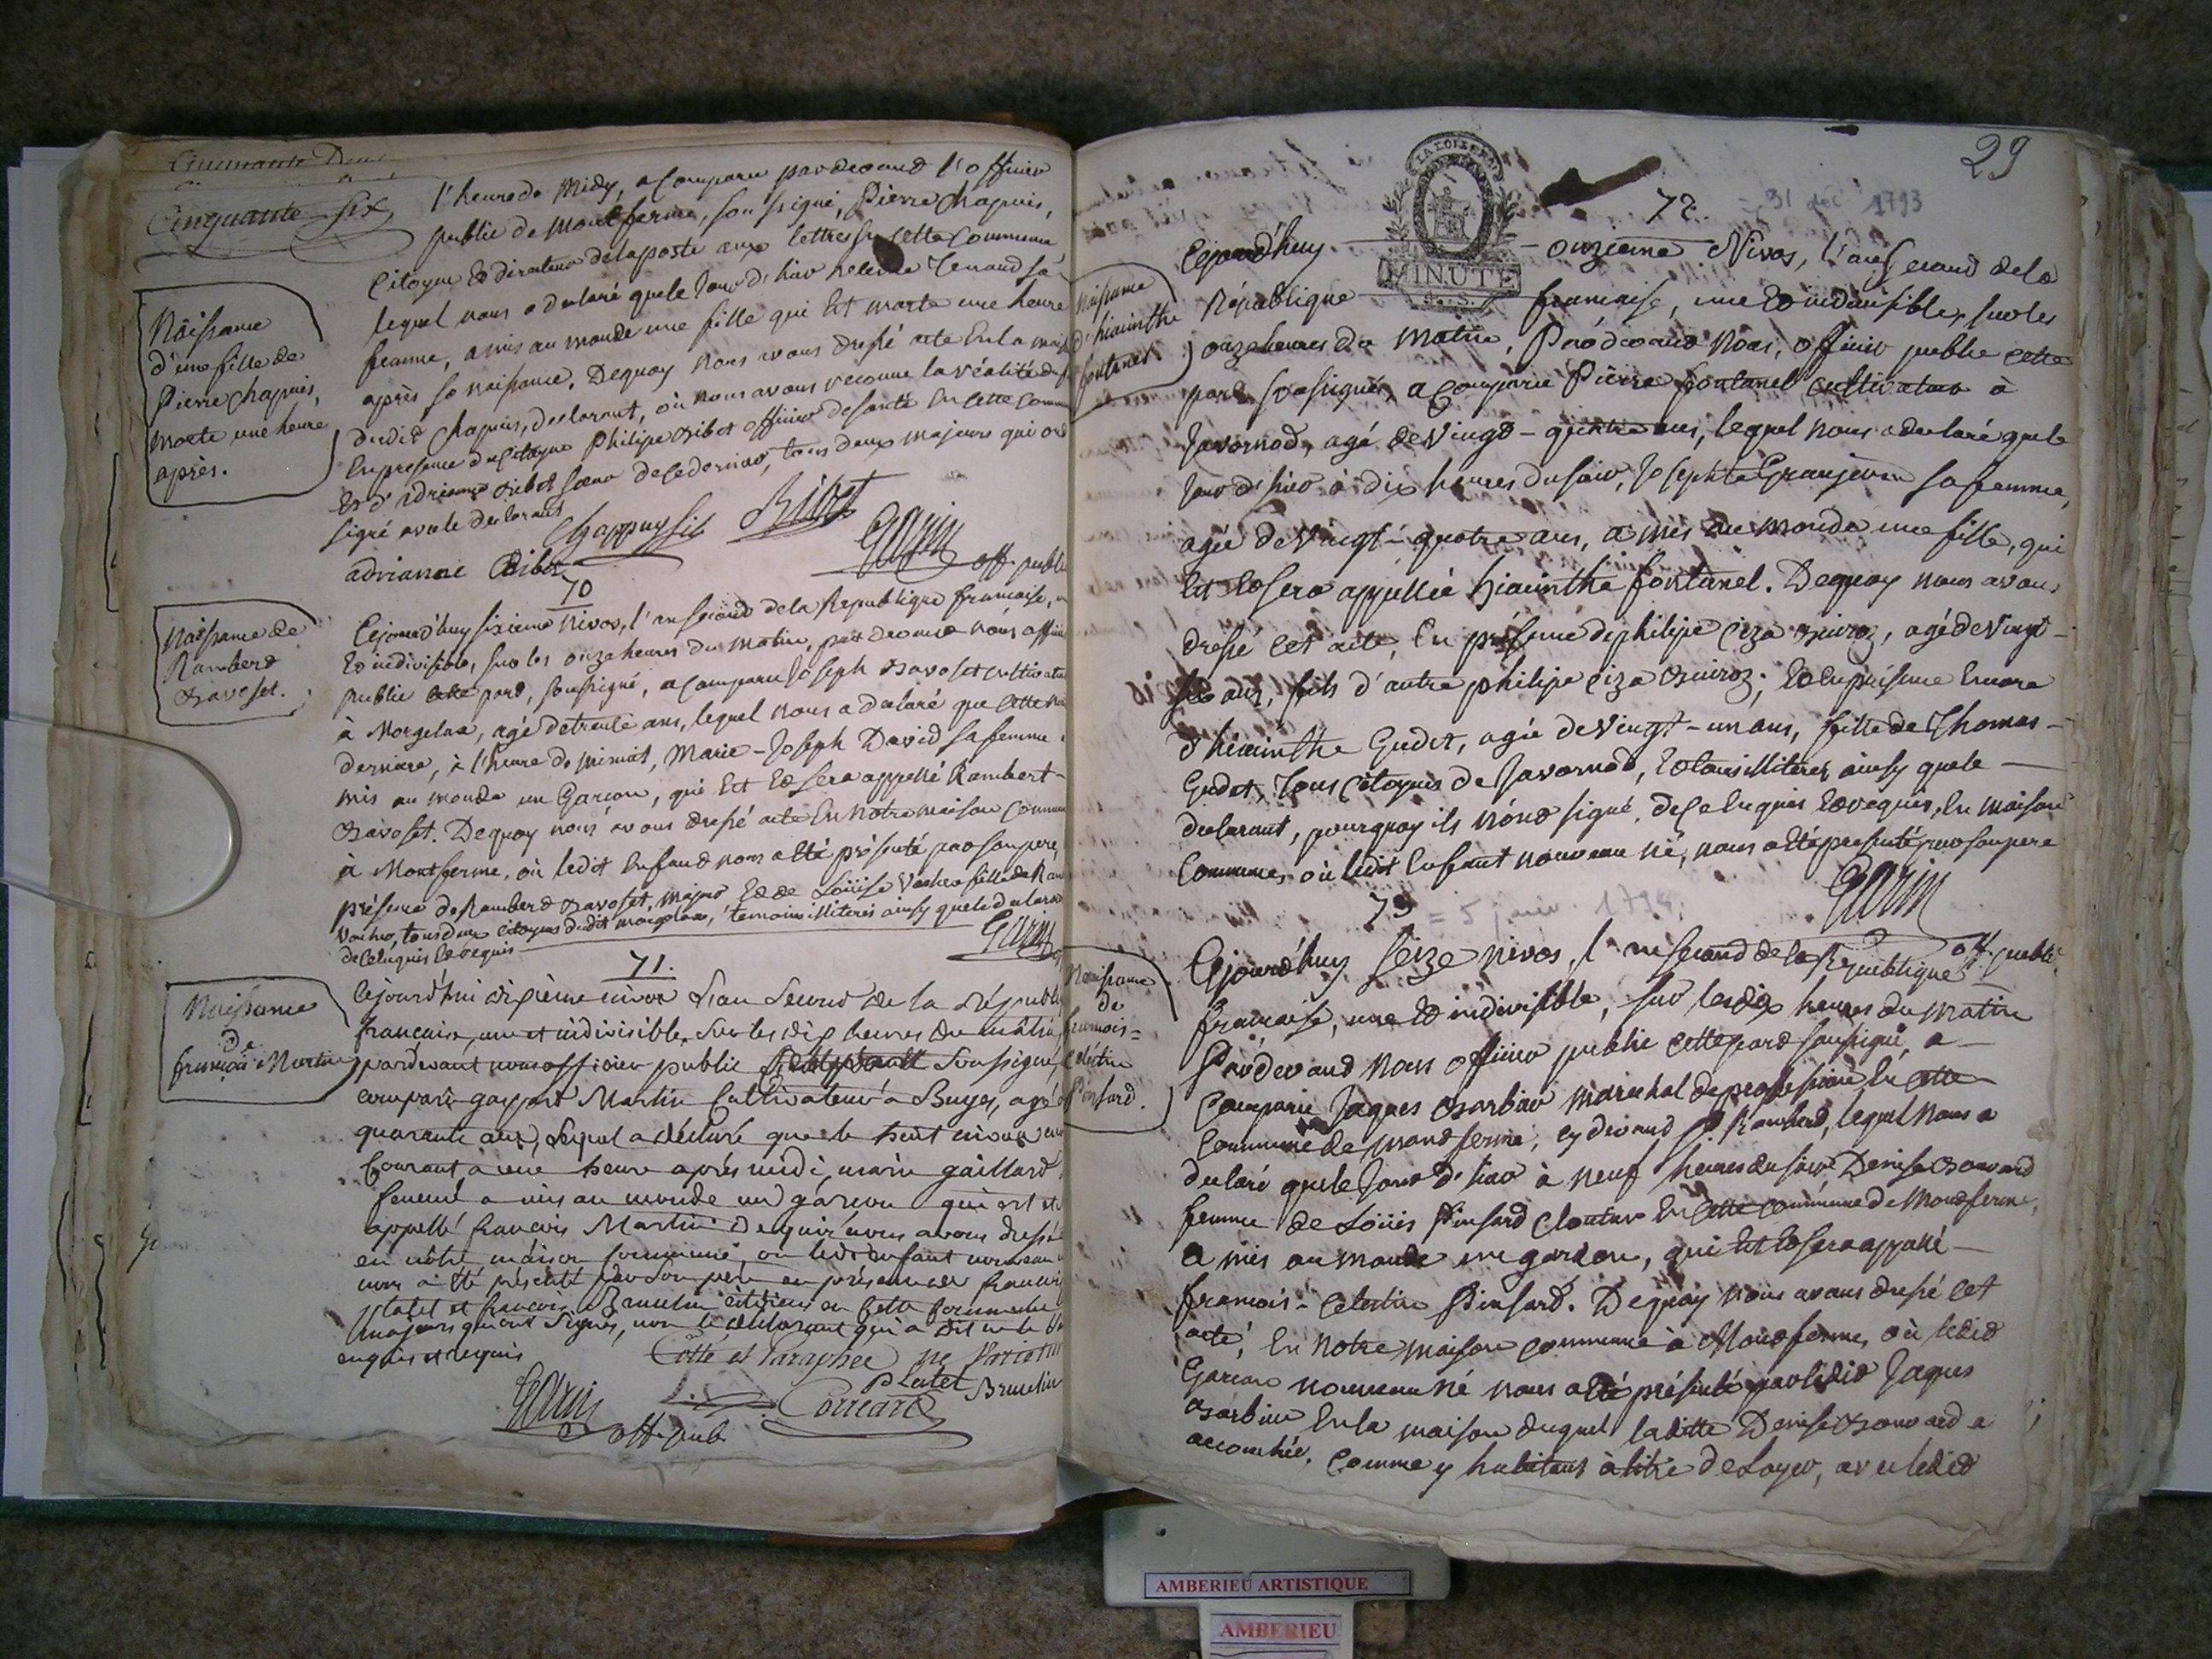 Cinquante Deux
Cinquante Six
l'heure de Midy, a Comparu pardevand l'officier
public de Montferme, sou signé, Pierre Chapuis,
Citoyen Et directeur de la poste aux lettres en Cette Commune
lequel nous a declaré que le Jour d'hier Renaud sa
femme, a mis au monde une fille qui Est morte une heure
après sa naissance. Dequoy nous avons dressé acte En la mais
dudit Chapuis, declarant, où nous avons reconnu la réalité du
En presence du Citoyen Philipe Ribet officier de santé En Cette Comm
Et d' adrianne Ribet sœur de Ce dernier, tous deux majeurs qui ont
signé avec le declarant
Chappuy Ribet
adrianne Ribet Garin off. public
Naissance
d'une fille de
Pierre Chapuis,
Morte une heure
après.
70
Cejourd'huy sixieme Nivos, l'an second de la Republique française, u
Et indivisible, sur les onze heures du matin, par devand nous offici
public Cette part, soussigné, a Comparu Joseph Savoset cultivate
à Morgelas, agé de trente ans, lequel nous a declaré que Cette nui
derniere, à l'heure de minuit, Marie-Joseph David sa femme a
mis au monde un Garcon, qui Est Et sera appellé Rambert-
Savoset. Dequoy nous avons dressé acte En Notre maison commun
à Montferme, où ledit Enfand nous a Eté présenté par son pere,
présence de Ramberd Savoset, major, Et de Loüise Vacher fille de Ram
Vacher, tous deux Citoyens dudit Morgelas, temoins illiteres ainsy que le declarant
de Ce Enquis Et requis
Garin
Naissance de
Ramberd
Savoset.
71.
Cejourd'hui dixième nivos L'an Second de la Républi
française, une et indivisible, sur les dix heures du matin,
pardevant nous officier public Soussigné,
comparu gaspard Martin Cultivateur à Buges, agé d
quarante ans, Lequel a déclaré que le huit nivos
Courant, à une heure après midi, marie gaillard
femme a mis au monde un garçon qui est et
appellé françois Martin. Dequoi nous avons dressé
en nôtre maison commune, ou ledit enfant nouveau
nous a été présenté par son pere en présence de françoi
plutet et françois Brunelin citoyens en cette commune
majeurs qui ont signés, non le déclarant qui a dit ne le
enquis et requis
Cotté et Paraphée ne Varietur
Plutet Brunelin
Garin off. pub. Correard
Naissance
de
françois Martin
29
LA LOI LE ROI
MINUTE
4. S.
72. = 31 dec 1793
Cejourd'huy - onzieme Nivos, l'an second de la
République française, une Et indivisible, sur les
onze heures du Matin, Pardevand Nous, officier public Cette
pard soussigné, a Comparu Pierre fontanel cultivateur à
Javornod, agé de Vingt-quatre ans, lequel nous a declaré que le
Jour d'hier à dix heures du soir, Josephte Granjean sa femme,
agée de Vingt-quatre ans, a mis au monde une fille, qui
Est Et sera appellée hiacinthe fontanel. Dequoy nous avons
dressé Cet acte, En présence de philipe Ciza, agé de Vingt-
six ans, fils d'autre philipe Ciza; Et En présence Encore
d'hiacinthe Gudet, agée de Vingt-un ans, fille de Thomas-
Gudet, Tous Citoyens de Javornod, Et tous illiteres ainsy que le
declarant, pourquoy ils n'ont signé, de Ce Enquis Et requis, En maison
Commune, où ledit Enfant nouveau né, nous a Eté presenté par son pere
Garin off. public
Naissance
d'hiacinthe
fontanel
73 = 5 janv. 1794
Cejourd'huy Seize nivos, l'an second de la Republique
française, une Et indivisible, sur les dix heures du Matin
Pardevand Nous officier public Cette pard soussigné, a
Comparu Jaques Barbier marechal de profession En Cette
Commune de Mondferme, cy devand St Ramberd, lequel Nous a
declaré que le Jour d'hier à neuf heures du soir Denise
femme de Loüis Pinsard Cloutier En Cette Commune de Mondferme,
a mis au monde un garcon, qui Est Et sera appellé
francois-Celestin Pinsard. Dequoy nous avons dressé Cet
acte, En Notre maison Commune à Mondferme, où ledid
Garcon nouveau né nous a Eté présenté par ledid Jaques
Barbier En la maison duquel laditte Denise a
accouchée, Comme y habitant à titre de Loyer, avec ledid
Naissance
de
francois=
Celestin
Pinsard.
AMBERIEU ARTISTIQUE
AMBERIEU